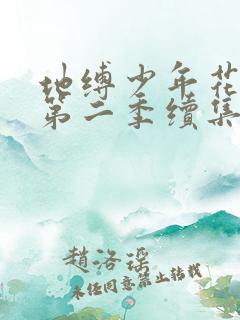 地缚少年花
第二季续集
趙洛瑶
未经同意禁止转载